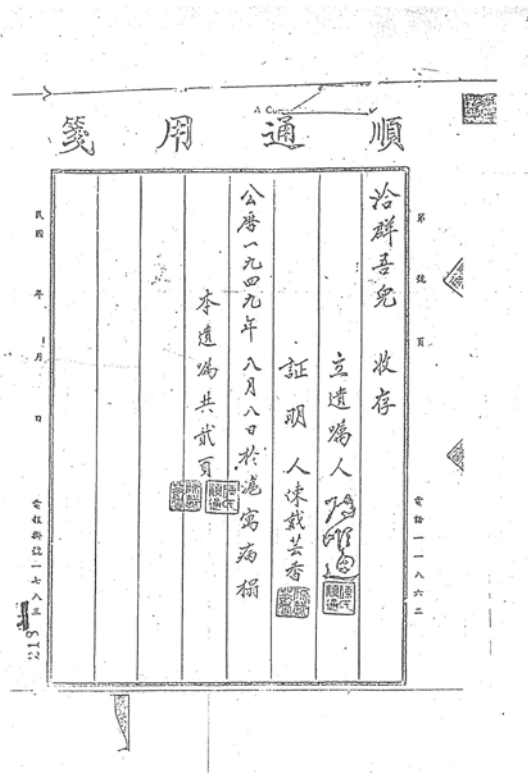 A Cu
順通用箋
第 號 頁
電話一一八六二
洽群吾兒 收存
立遺囑人
証明人 陳戴芸香
公曆一九四九年八月八日於滬寓病榻
本遺囑共貳頁
民國 年 月 日
電報掛號一七八三
218